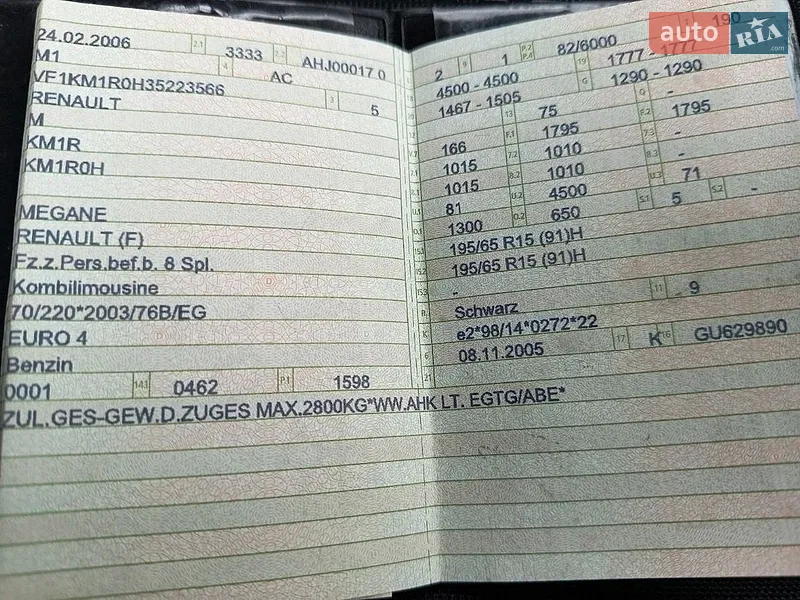 24.02.2006 2.1 3333 2.2 AHJ00017 0
M1 4 AC
VF1KM1R0H35223566 3 5
RENAULT
M
KM1R
KM1R0H
MEGANE
RENAULT (F)
Fz.z.Pers.bef.b. 8 Spl.
Kombilimousine
70/220*2003/76B/EG
EURO 4
Benzin
0001 14.1 0462 P.1 1598
ZUL.GES-GEW.D.ZUGES MAX.2800KG*WW.AHK LT. EGTG/ABE*
2 9 1 P.2 P.4 82/6000 190
4500 - 4500 19 1777 - 1777
1467 - 1505 G 1290 - 1290
13 75 Q -
166 F.1 1795 F.2 1795
1015 7.2 1010 7.3 -
1015 8.2 1010 8.3 -
81 U.2 4500 U.3 71
1300 O.2 650 S.1 5 S.2 -
195/65 R15 (91)H
195/65 R15 (91)H
-
Schwarz 11 9
K e2*98/14*0272*22
6 08.11.2005 17 K 16 GU629890
21
auto RIA
.com